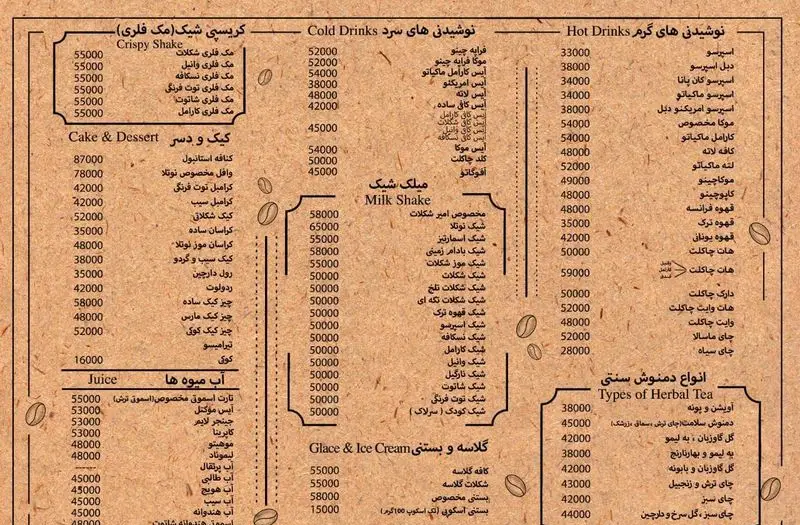 نوشیدنی های گرم Hot Drinks
اسپرسو 33000
دبل اسپرسو 38000
اسپرسو کان پانا 34000
اسپرسو ماکیاتو 34000
اسپرسو امریکنو دبل 38000
موکا مخصوص 54000
کارامل ماکیاتو 54000
کافه لاته 48000
لته ماکیاتو 52000
موکاچینو 49000
کاپوچینو 48000
قهوه فرانسه 48000
قهوه ترک 35000
قهوه یونانی 42000
هات چاکلت 50000
هات چاکلت 59000
دارک چاکلت 50000
هات وایت چاکلت 52000
وایت چاکلت 48000
چای ماسالا 52000
چای سیاه 28000
انواع دمنوش سنتی
Types of Herbal Tea
آویشن و پونه 38000
دمنوش سلامت(چای ترش ،سماق ،زرشک) 45000
گل گاوزبان ، به لیمو 42000
به لیمو و بهارنارنج 38000
گل گاوزبان و بابونه 42000
چای ترش و زنجبیل 43000
چای سبز 42000
چای سبز ، گل سرخ و دارچین 44000
نوشیدنی های سرد Cold Drinks
فراپه چینو 52000
موکا فراپه چینو 52000
آیس کارامل ماکیاتو 54000
آیس امریکنو 38000
آیس لاته 48000
آیس کافی ساده 42000
آیس کافی کارامل
آیس کافی شکلات
آیس کافی وانیل
آیس کافی نسکافه
45000
آیس موکا 54000
کلد چاکلت 50000
آفوگاتو 45000
میلک شیک
Milk Shake
مخصوص امیر شکلات 58000
شیک نوتلا 65000
شیک اسمارتیز 55000
شیک بادام زمینی 58000
شیک موز شکلات 55000
شیک شکلات 50000
شیک شکلات تلخ 50000
شیک شکلات تکه ای 50000
شیک قهوه ترک 50000
شیک اسپرسو 50000
شیک نسکافه 50000
شیک کارامل 50000
شیک وانیل 50000
شیک نارگیل 50000
شیک شاتوت 50000
شیک توت فرنگی 50000
شیک کودک ( سرلاک ) 50000
گلاسه و بستنی Glace & Ice Cream
کافه گلاسه 55000
شکلات گلاسه 55000
بستنی مخصوص 58000
بستنی اسکوپی (تک اسکوپ 100گرم) 15000
کریسپی شیک(مک فلری)
Crispy Shake
مک فلری شکلات 55000
مک فلری وانیل 55000
مک فلری نسکافه 55000
مک فلری توت فرنگی 55000
مک فلری شاتوت 55000
مک فلری کارامل 55000
کیک و دسر Cake & Dessert
کنافه استانبول 87000
وافل مخصوص نوتلا 78000
کرامبل توت فرنگی 42000
کرامبل سیب 42000
کیک شکلاتی 52000
کراسان ساده 35000
کراسان موز نوتلا 48000
کیک سیب و گردو 38000
رول دارچین 35000
ردولوت 42000
چیز کیک ساده 58000
چیز کیک مارس 48000
چیز کیک کوکی 52000
تیرامیسو
کوکی 16000
آب میوه ها Juice
تارت اسموتی مخصوص(اسموتی ترش) 55000
آیس موکتل 53000
جینجر لایمر 53000
کایرینا 53000
موهیتو 48000
لیموناد 48000
آب پرتقال ------
آب طالبی 45000
آب هویج 45000
آب سیب 45000
آب هندوانه 48000
اسموتی هندوانه شاتوت 48000